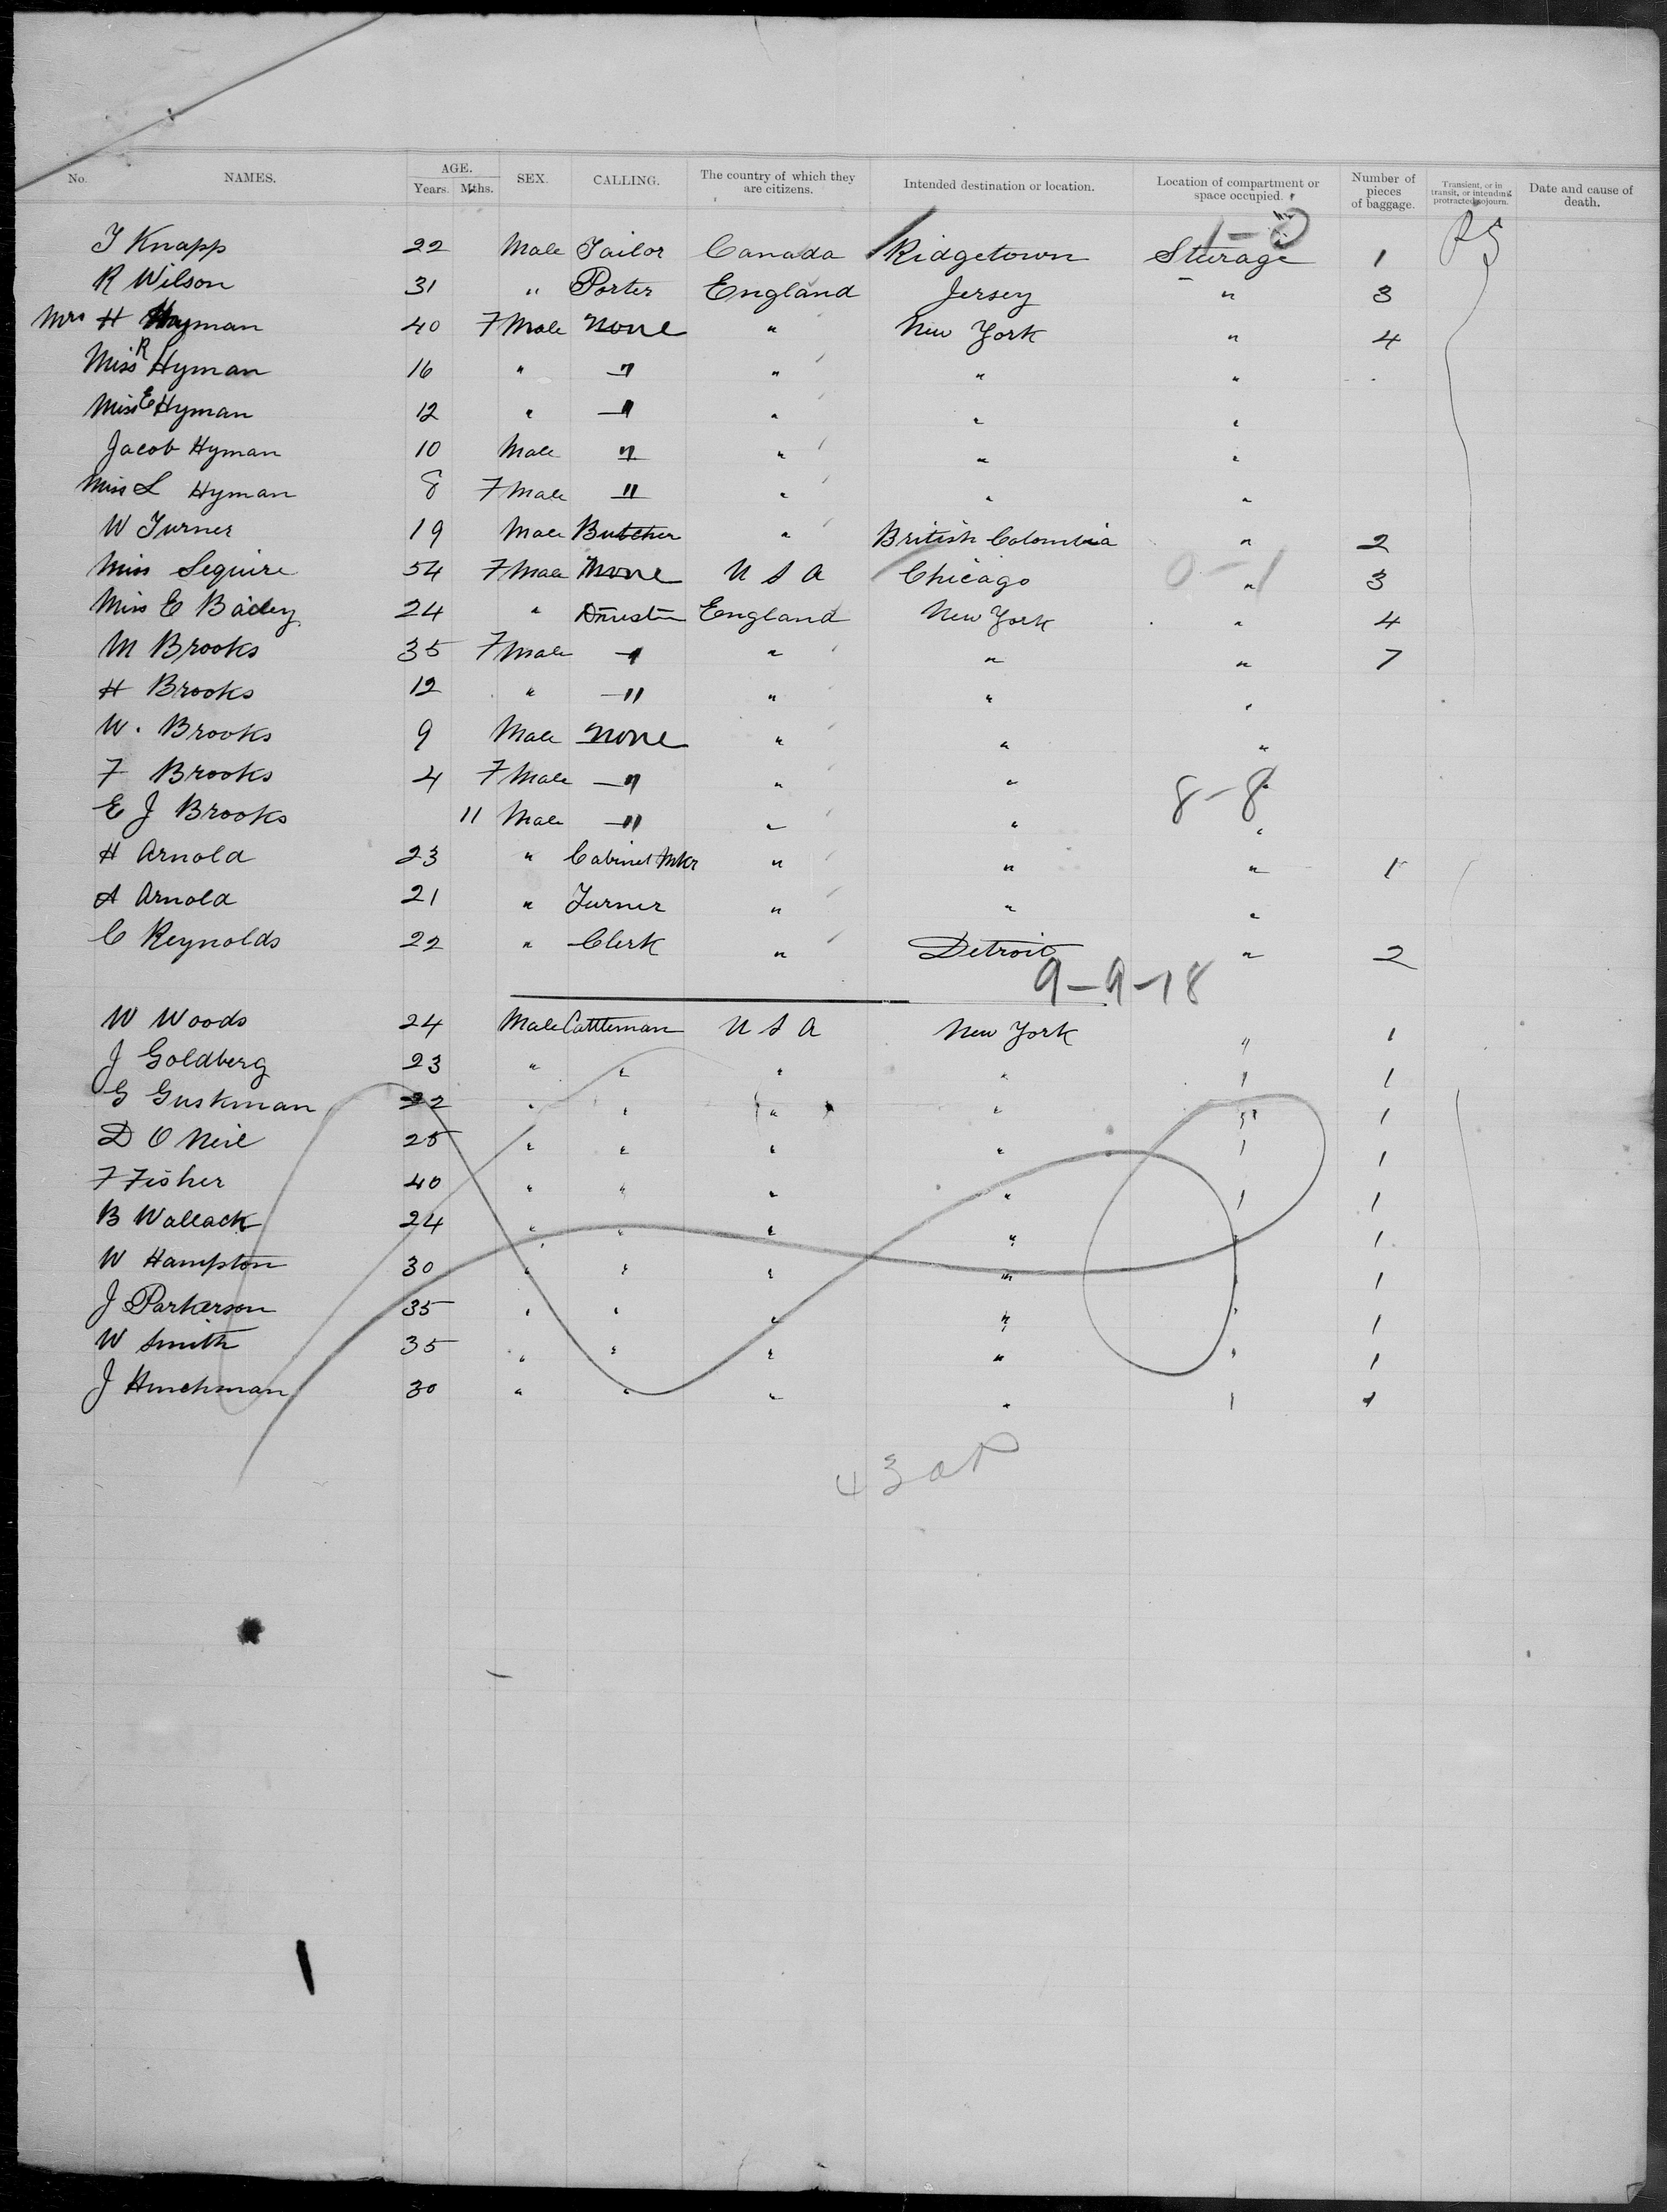 No. NAMES. AGE. Years. Mths. SEX. CALLING. The country of which they are citizens. Intended destination or location. Location of compartment or space occupied. Number of pieces of baggage. Transient, or in transit, or intending protracted sojourn. Date and cause of death.
J Knapp 22 Male Tailor Canada Ridgetown Sturage 1
R Wilson 31 " Porter England Jersey " 3
Mrs H Hyman 40 7 Male none " New York " 4
Miss R Hyman 16 " " " " "
Miss E Hyman 12 " " " " "
Jacob Hyman 10 Male " " " "
Miss L Hyman 8 7 Male " " " "
W Turner 19 Male Butcher " British Colombia " 2
Miss Seguire 54 7 Male None U S A Chicago 0-1 " 3
Miss E Bailey 24 " England New York " 4
M Brooks 35 7 Male " " " " 7
H Brooks 12 " " " " "
W. Brooks 9 Male none " " "
F Brooks 4 7 Male " " " 8-8
E J Brooks 11 Male " " " "
H Arnold 23 " Cabinet Mkr " " " 1
A Arnold 21 " Turner " " "
C Reynolds 22 " Clerk " Detroit " 2
9-9-18
W Woods 24 Male Cattleman U S A New York " 1
J Goldberg 23 " " " " " 1
G Guskman 22 " " " " " 1
D O Neil 25 " " " " " 1
F Fisher 40 " " " " " 1
B Wallack 24 " " " " " 1
W Hampton 30 " " " " " 1
J Parkerson 35 " " " " " 1
W Smith 35 " " " " " 1
J Hinchman 30 " " " " " 1